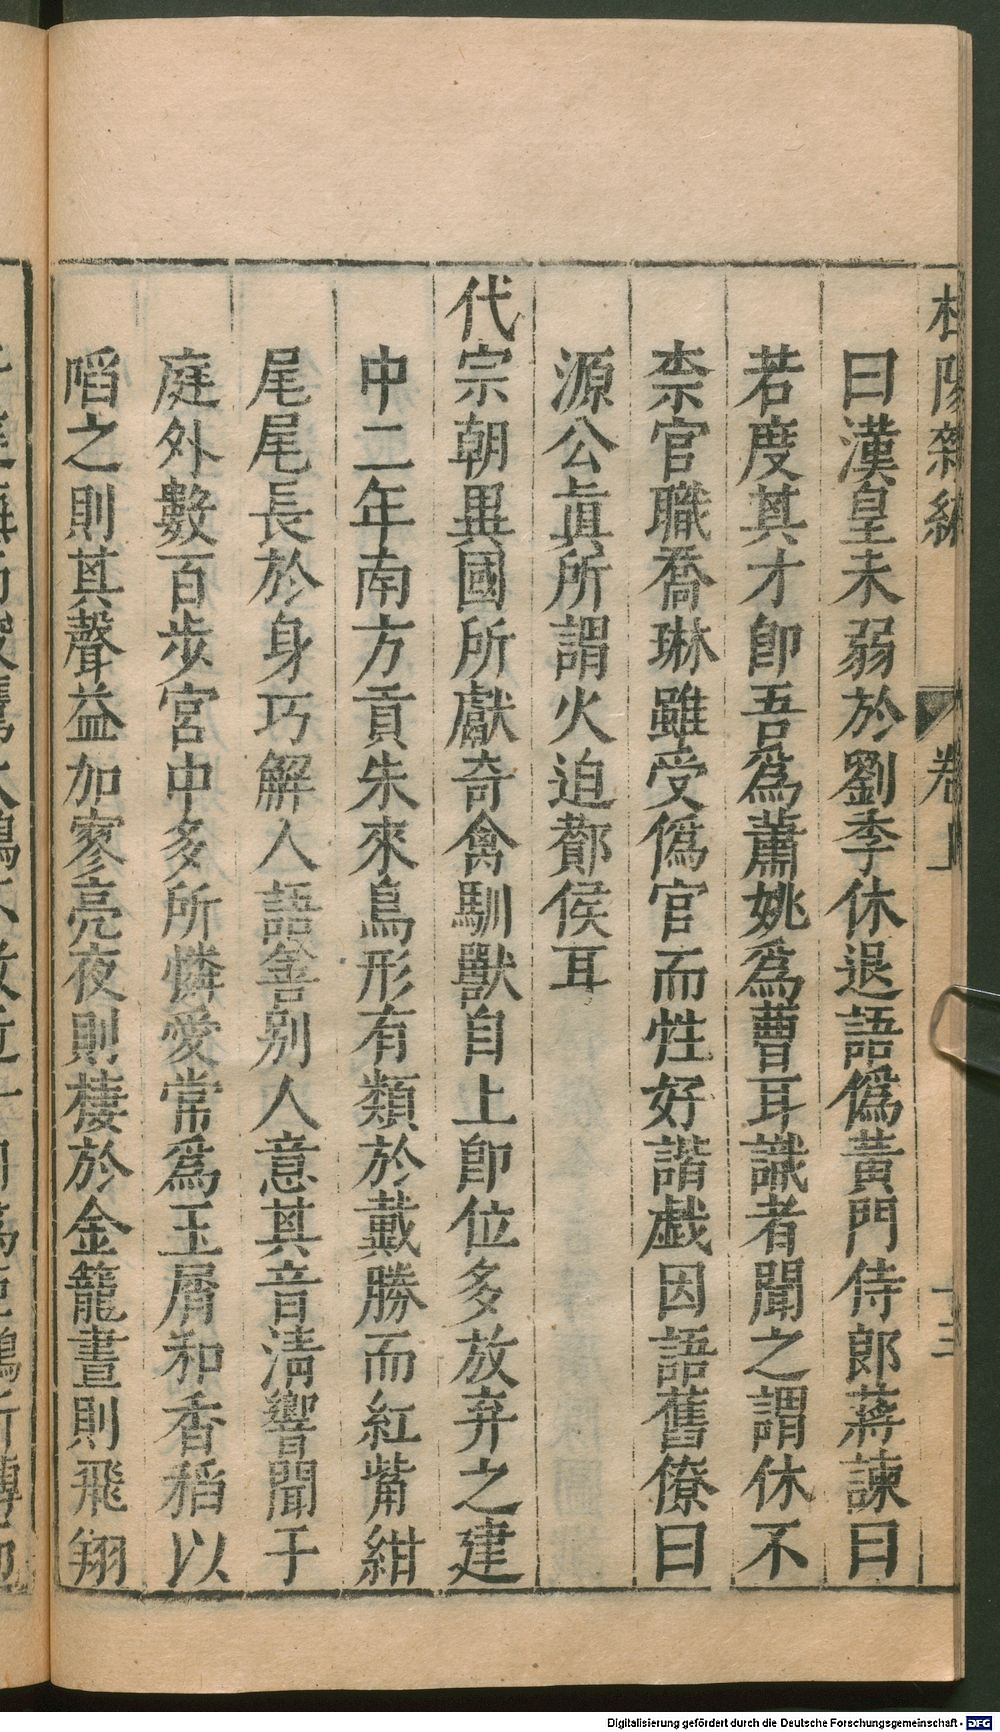 杜陽雜編 卷上 十三
曰漢皇未弱於劉季休退語僞黃門侍郎蔣諫曰
若度其才卽吾爲蕭姚爲曹耳識者聞之謂休不
柰官職喬琳雖受僞官而性好諧戯因語舊僚曰
源公眞所謂火迫酇侯耳
代宗朝異國所獻奇禽馴獸自上卽位多放弃之建
中二年南方貢朱來鳥形有類於戴勝而紅觜紺
尾尾長於身巧解人語善别人意其音淸響聞于
庭外數百步宮中多所憐愛常爲玉屑和香稻以
啗之則其聲益加寥亮夜則棲於金籠晝則飛翔
Digitalisierung gefördert durch die Deutsche Forschungsgemeinschaft - DFG